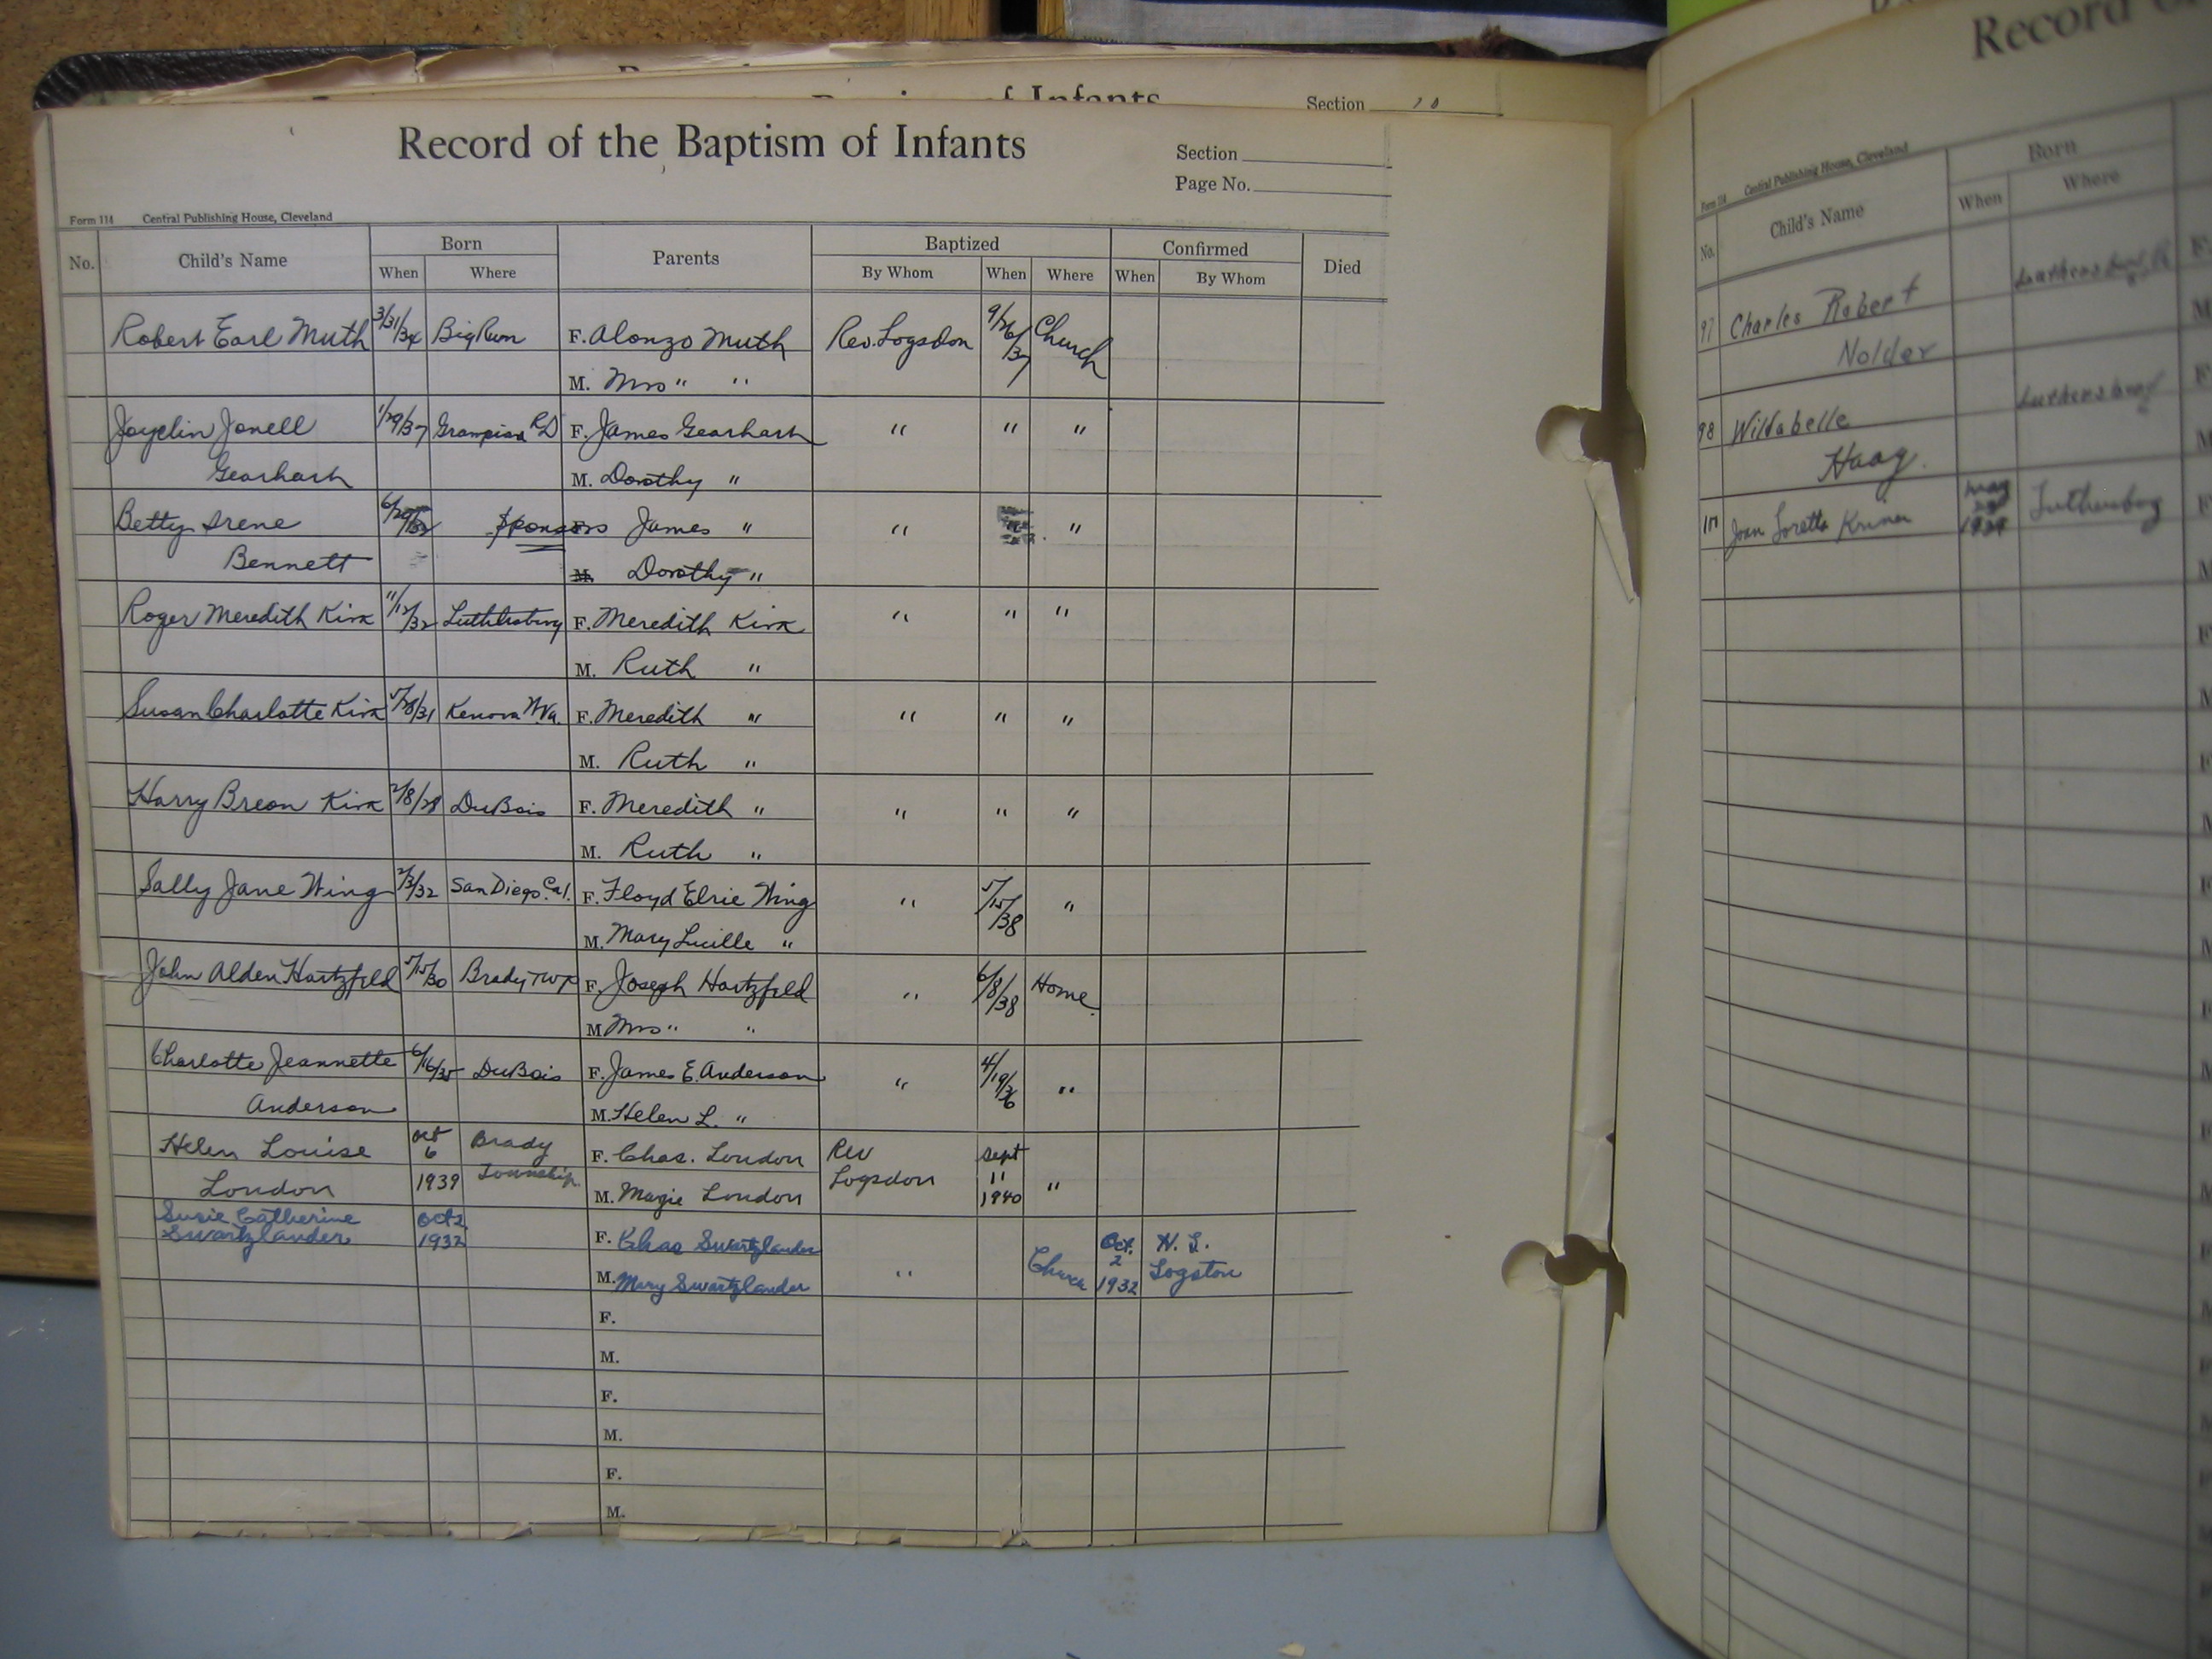 Record of the Baptism of Infants
Section
Page No.
Form 114 Central Publishing House, Cleveland
No. Child's Name Born Parents Baptized Confirmed Died
When Where By Whom When Where When By Whom
Robert Earl Muth 3/31/34 Big Run F. Alonzo Muth Rev. Logsdon 9/26/37 Church
M. Mrs " "
Joyclin Jonell 1/29/37 Grampian RD F. James Gearhart " " "
Gearhart M. Dorothy "
Betty Irene Sponsors James " " "
Bennett M. Dorothy "
Roger Meredith Kirk 11/12/32 Luthersburg F. Meredith Kirk " " "
M. Ruth "
Susan Charlotte Kirk 5/28/31 Kenova W.Va. F. Meredith " " " "
M. Ruth "
Harry Breon Kirk 2/8/28 DuBois F. Meredith " " " "
M. Ruth "
Sally Jane Wing 2/3/32 San Diego. Cal. F. Floyd Elrie Wing " 5/15/38 "
M. Mary Lucille "
John Alden Hartzfeld 5/15/30 Brady Twp F. Joseph Hartzfeld " 6/8/38 Home
M Mrs " "
Charlotte Jeannette 6/16/35 DuBois F. James E. Anderson " 4/19/36 "
Anderson M. Helen L. "
Helen Louise Oct 6 Brady F. Chas. London Rev Sept 11
London 1939 Township M. Magie London Logsdon 1940 "
Susie Catherine Oct 2
Swartzlander 1932 F. Chas Swartzlander Oct. 2 H. L.
M. Mary Swartzlander " Church 1932 Logston
F.
M.
F.
M.
F.
M.
of Infants
Section 10
Record
Form 114 Central Publishing House, Cleveland
No. Child's Name Born
When Where
97 Charles Robert
Nolder
98 Wildabelle Luthersburg
Haag
101 Joan Loretta Kriner Luthersburg